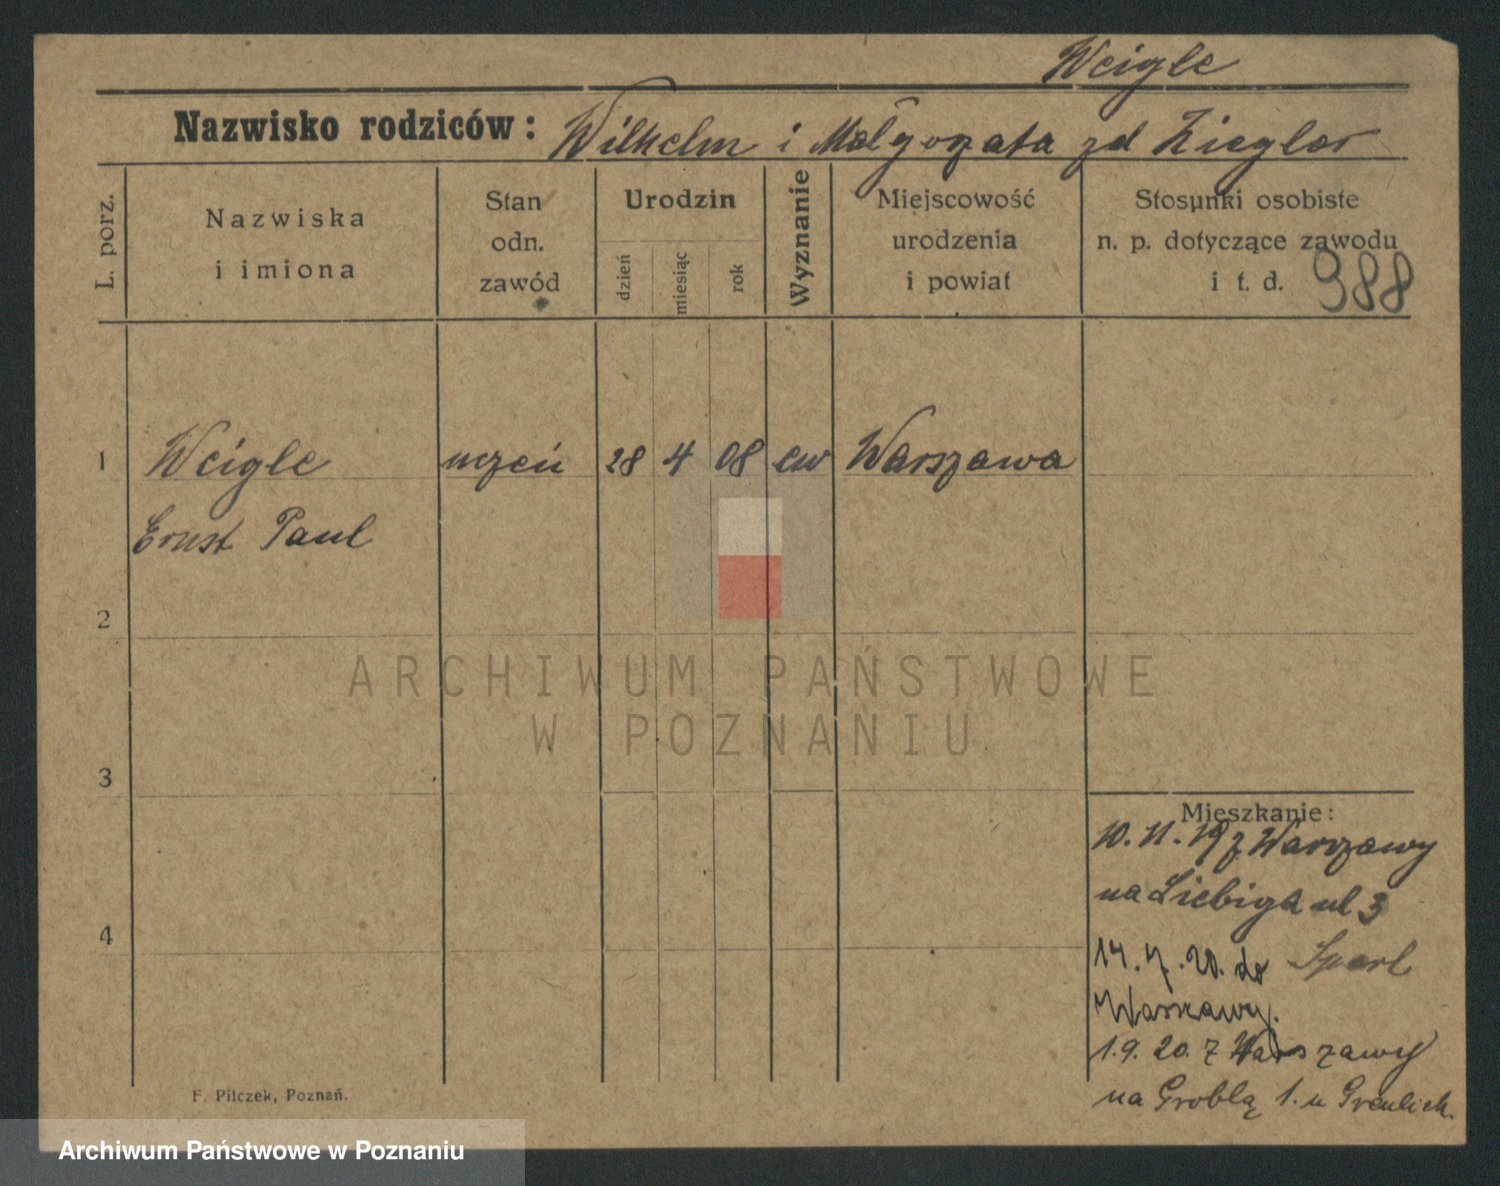 Weigle
Nazwisko rodziców: Wilhelm i Małgorzata zd Ziegler
L. porz.
Nazwiska
i imiona
Stan
odn.
zawód
Urodzin
dzień
miesiąc
rok
Wyznanie
Miejscowość
urodzenia
i powiat
Stosunki osobiste
n. p. dotyczące zawodu
i t. d.
988
1 Weigle uczeń 28 4 08 ew Warszawa
Ernst Paul
2
ARCHIWUM PAŃSTWOWE
W POZNANIU
3
Mieszkanie:
10. 11. 19 z Warszawy
na Liebiga ul 3
4
14. 7. 20. do
Warszawy.
1. 9. 20. z Warszawy
na Groblą 1. u Greulich.
F. Pilczek, Poznań.
Archiwum Państwowe w Poznaniu